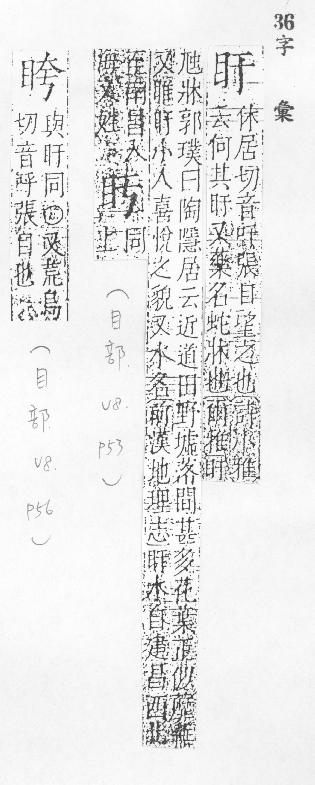 36
字
彙
盱
休居切音吁張目望也詩小雅
云何其盱又藥名蛇牀也爾雅盱
虺牀郭璞曰陶隱居云近道田野墟落間甚多花葉正似蘼蕪
又睢盱小人喜悅之貌又水名前漢地理志盱水自建昌西北
至南昌入
海又姓
盱
同
上
(目部 V8. P53)
晇
與盱同◎又荒烏
切音呼張目也
(目部 V8. P56)